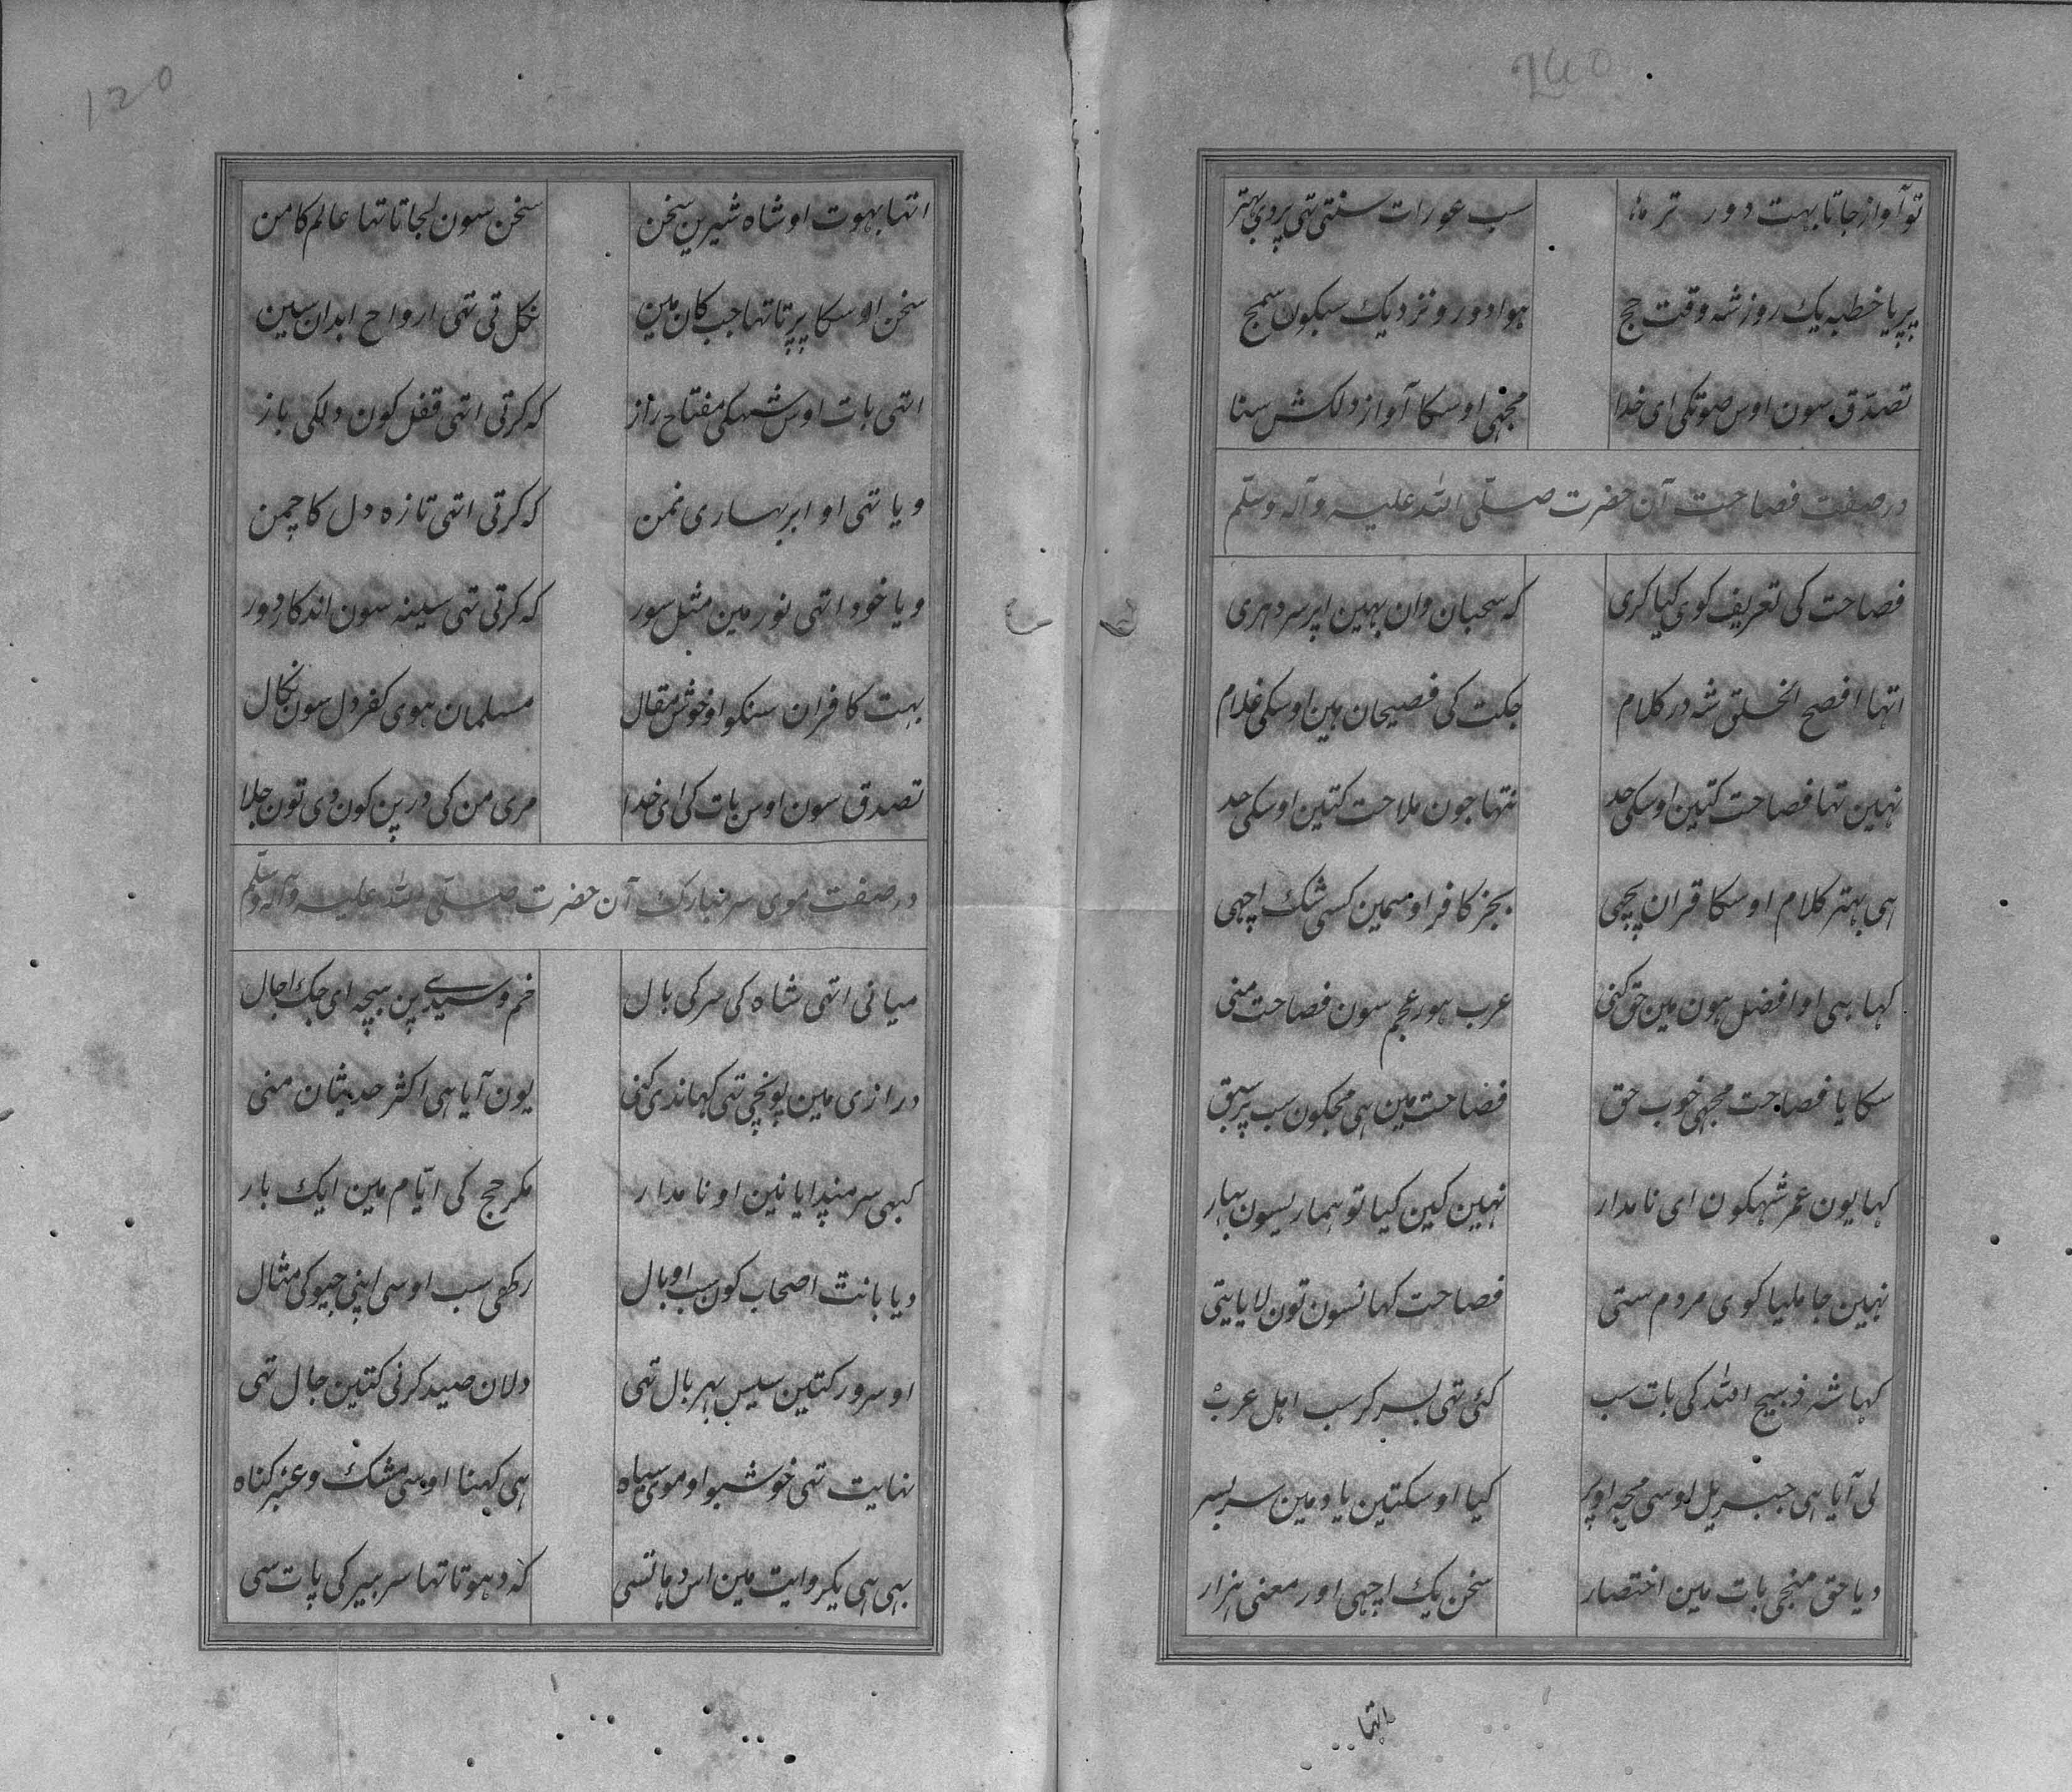 240
تو آواز جاتا بہت دور تر سب عورات سنتی تہی پردی بہتر
پریا خطبہ یک روز شہ وقت حج ہوا دور و نزدیک سبکون سمج
تصدق سون اوس صوتکی ای خدا مجہی اوسکا آواز دلکش سنا
در صفت فصاحت آن حضرت صلّی اللہ علیہ وآلہ وسلّم
فصاحت کی تعریف کوی کیا کری کہ سحبان وان بہین اپر سر دہری
اتہا افصح الخلق شہ در کلام جکت کی فصیحان ہین اوسکی غلام
نہین تہا فصاحت کتین اوسکی حد نتہا جون ملاحت کتین اوسکی حد
ہی بہتر کلام اوسکا قران پچہی بجز کافر اوسمین کسی شک اچہی
کہا ہی او افضل ہون مین حق کنی عرب ہور عجم سون فصاحت منی
سکایا فصاحت مجہی خوب حق فصاحت مین ہی مجکون سب پر سبق
کہا یون عمر شہکون ای نامدار نہین کین کیا تو ہماریسون بہار
نہین جا ملیا کوی مردم ستی فصاحت کہانسون تون لایا یتی
کہا شہ ذبیح اللہ کی بات سب کئی تہی بسر کر سب اہل عرب
لی آیا ہی جبریل اوسی مجہ اوپر کیا اوسکتین یاد مین سربسر
دیا حق منجی بات مین اختصار سخن یک اچہی اور معنی ہزار
اتہا
120
اتہا بہوت او شاہ شیرین سخن سخن سون لجاتا تہا عالم کا من
سخن اوسکا پرتا تہا جب کان مین نکل تی تہی ارواح ابدان سین
اتہی بات اوس شہکی مفتاح راز کہ کرتی اتہی قفل کون دلکی باز
ویا تہی او ابر بہاری نمن کہ کرتی اتہی تازہ دل کا چمن
ویا خود اتہی نور مین مثل سور کہ کرتی تہی سینہ سون اندکار دور
بہت کافران سنکو او خوش مقال مسلمان ہوی کفر دل سون نکال
تصدق سون اوس بات کی ای خدا مری من کی درپن کون دی تون جلا
در صفت موی سر مبارک آن حضرت صلّی اللہ علیہ وآلہ وسلّم
میانی اتہی شاہ کی سر کی بال خم و سیدی پن بیچہ ای جک اجال
درازی مین پونچی تہی کہاندی کنی یون آیا ہی اکثر حدیثان منی
کبہی سر منڈایا نین او نامدار مکر حج کی ایّام مین ایک بار
دیا بانٹ اصحاب کون سب او بال رکہی سب اوسی اپنی جیو کی مثال
او سرور کتین سیس بہر بال تہی دلان صید کرنی کتین جال تہی
نہایت تہی خوشبو او موی سیاہ ہی کہنا اوسی مشک و عنبر کناہ
بہی ہی یکروایت مین اس دہاتسی کہ دہوتا تہا سر بیر کی پات سی